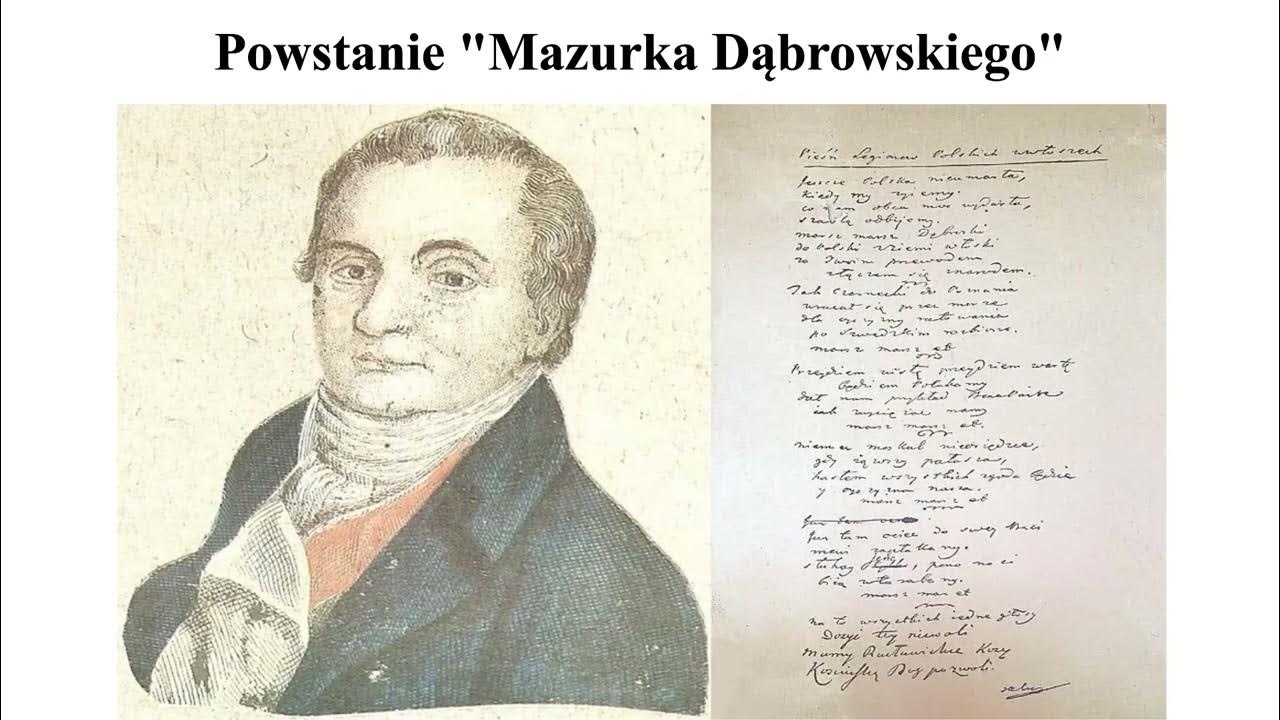 Powstanie "Mazurka Dąbrowskiego"
Pieśń Legionow Polskich we Włoszech
Jeszcze Polska nieumarła,
kiedy my żyiemy.
co nam obca moc wydarła,
szablą odbijemy.
marsz marsz Dąbrowski
do Polski z ziemi włoski
za Twoim przewodem
złączem się z narodem.
Jak Czarnecki do Poznania
wracał się przez morze
dla oyczyzny ratowania
po Szwedzkim rozbiorze.
marsz marsz et
Przeydziem Wisłę przeydziem Wartę
będziem Polakamy
dał nam przykład Bonaparte
jak zwyciężać mamy
marsz marsz et.
niemiec moskal nieosiędzie,
gdy jąwszy pałasza,
hasłem wszystkich zgoda będzie
y oyczyzna nasza.
marsz marsz et
Już tam ociec do swey Basi
mówi zapłakany.
słuchay jeno, pono nasi
biią w tarabany.
marsz marsz et
na to wszystkich iedne głosy
Dosyć tey niewoli
mamy Racławickie Kosy
Kościuszkę Bog pozwoli.